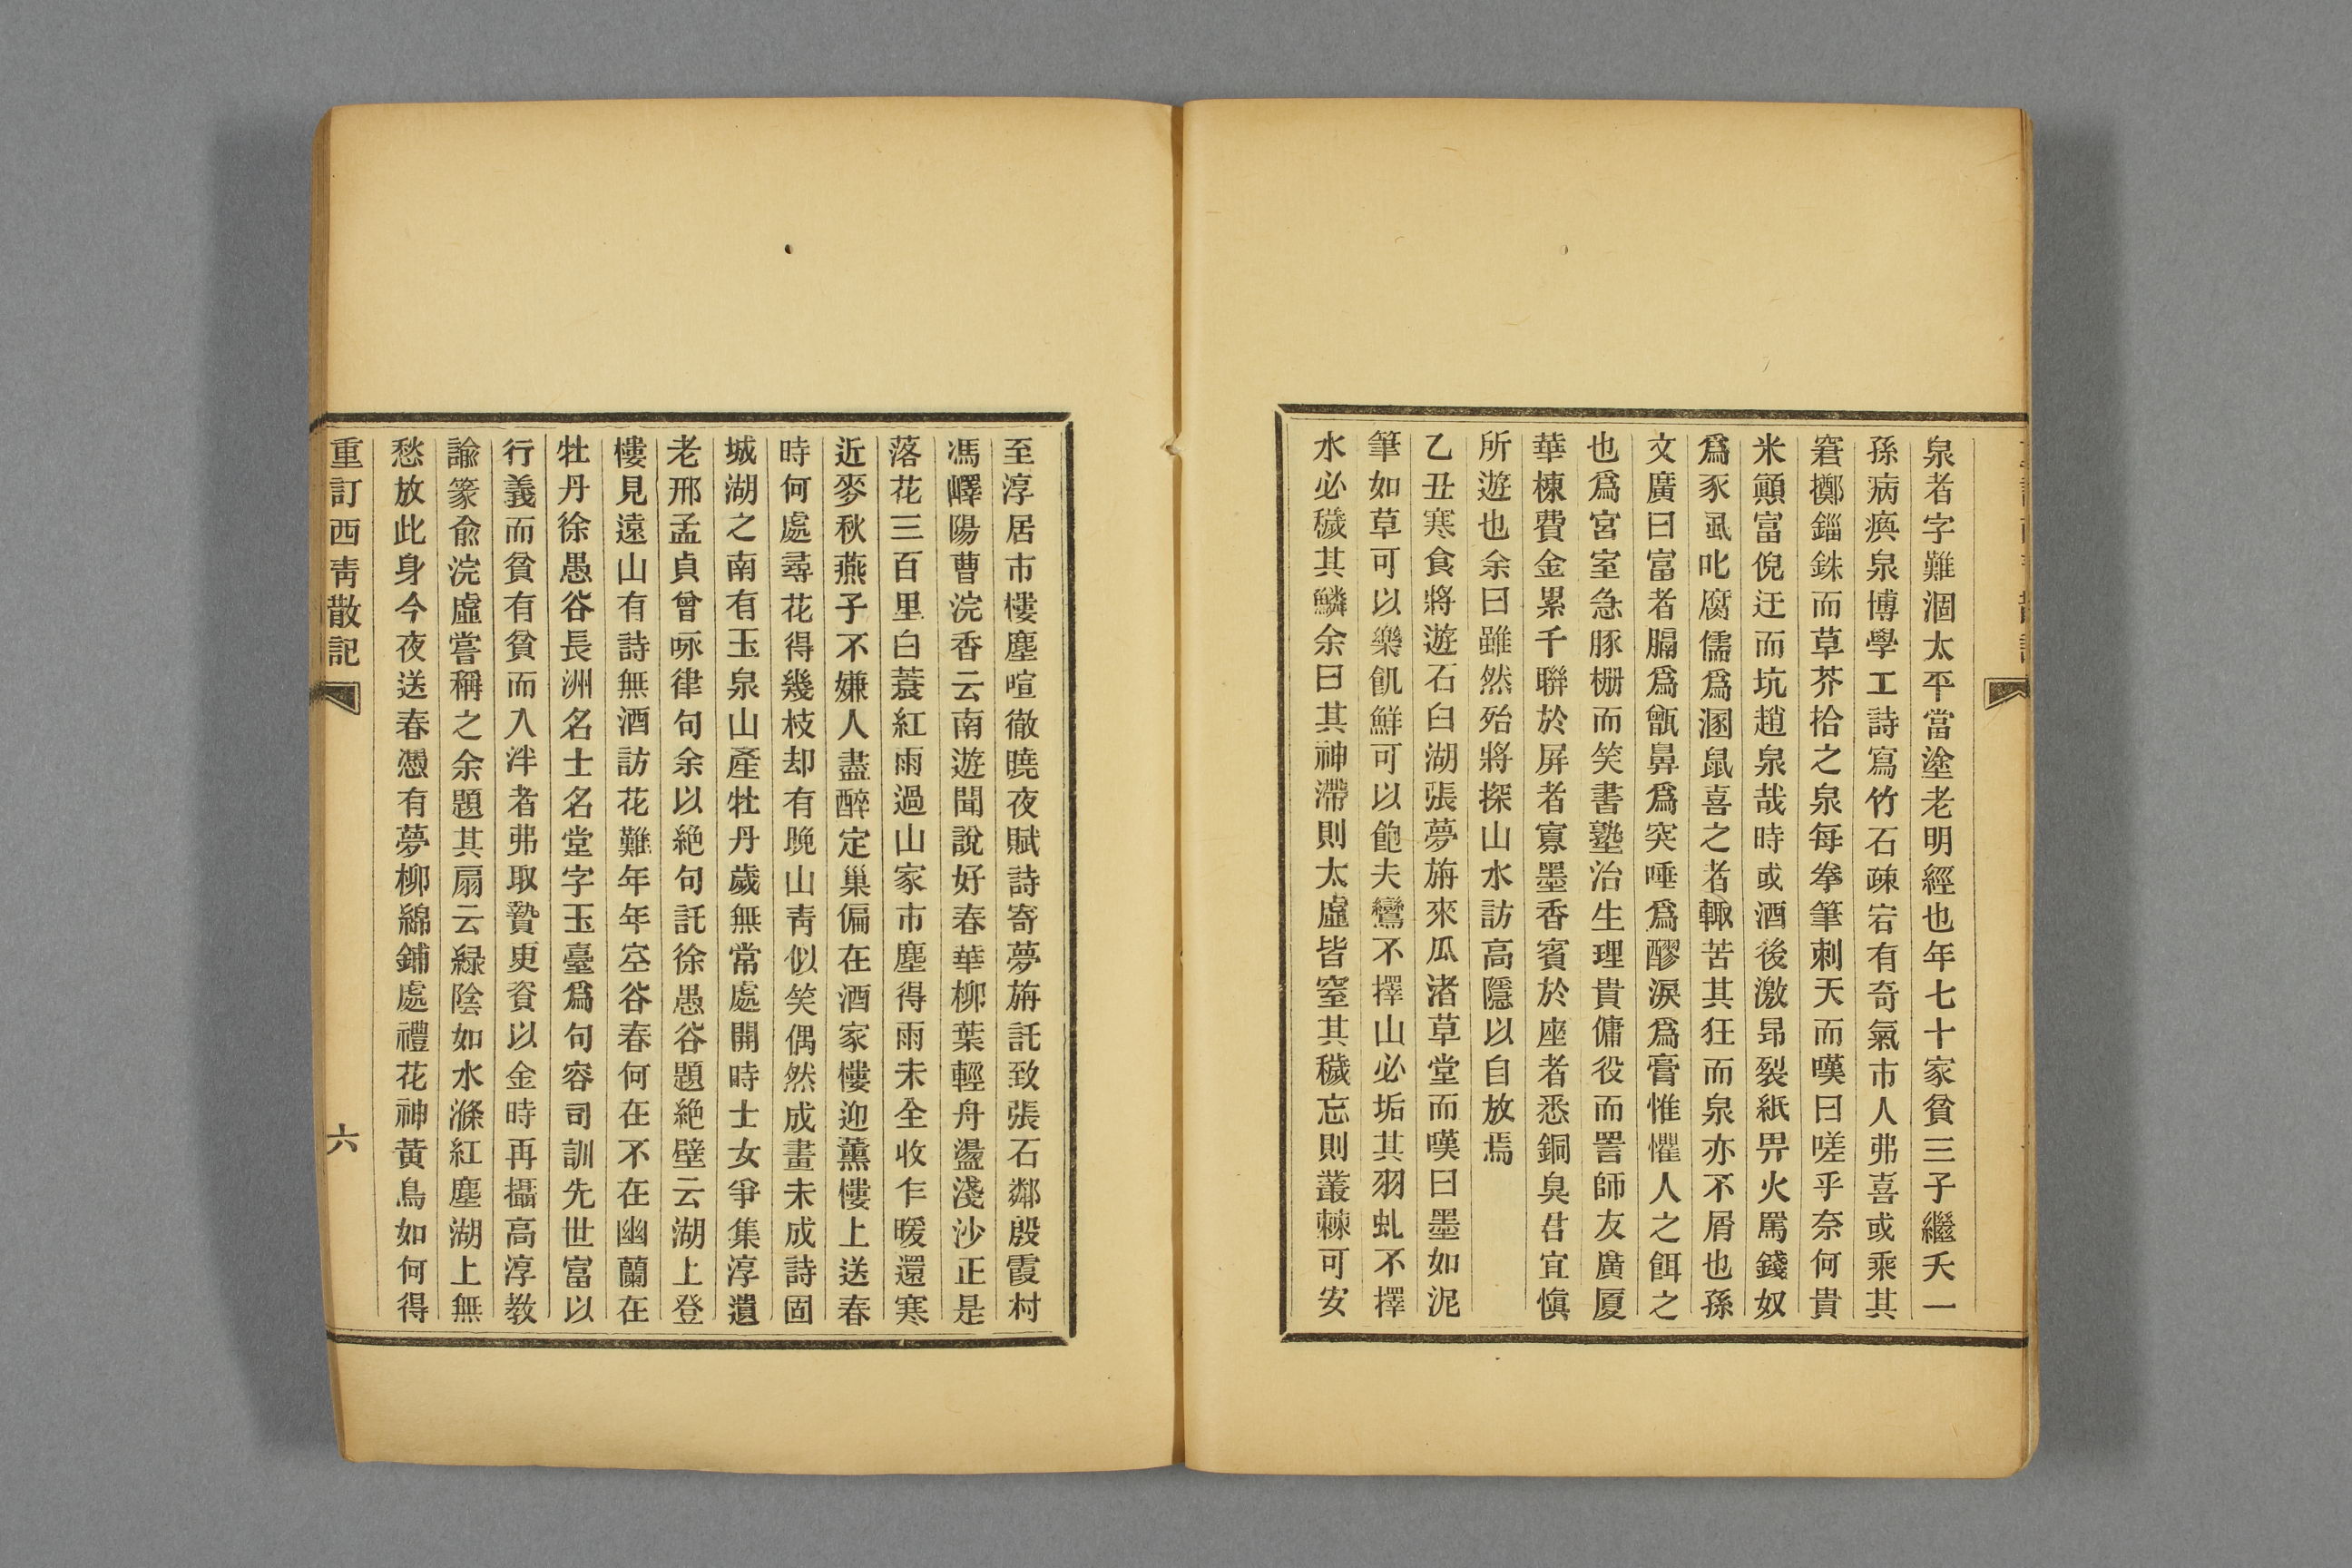 泉者字難涸太平當塗老明經也年七十家貧三子繼夭一
孫病瘓泉博學工詩寫竹石疎宕有奇氣市人弗喜或乘其
窘擲錙銖而草芥拾之泉每拳筆刺天而嘆曰嗟乎奈何貴
米顚富倪迂而坑趙泉哉時或酒後激昻裂紙畀火罵錢奴
爲豕虱叱腐儒爲溷鼠喜之者輙苦其狂而泉亦不屑也孫
文廣曰富者膈爲甑鼻爲突唾爲醪淚爲膏惟懼人之餌之
也爲宮室急豚栅而笑書塾治生理貴傭役而詈師友廣厦
華棟費金累千聯於屏者寡墨香賓於座者悉銅臭君宜愼
所遊也余曰雖然殆將探山水訪高隱以自放焉
乙丑寒食將遊石臼湖張夢旃來瓜渚草堂而嘆曰墨如泥
筆如草可以樂飢鮮可以飽夫鸞不擇山必垢其羽虬不擇
水必穢其鱗余曰其神滯則太虛皆窒其穢忘則叢棘可安
至淳居市樓塵喧徹曉夜賦詩寄夢旃託致張石鄰殷霞村
馮嶧陽曹浣香云南遊聞說好春華柳葉輕舟盪淺沙正是
落花三百里白蓑紅雨過山家市塵得雨未全收乍暖還寒
近麥秋燕子不嫌人盡醉定巢偏在酒家樓迎薰樓上送春
時何處尋花得幾枝却有晚山靑似笑偶然成畫未成詩固
城湖之南有玉泉山產牡丹歲無常處開時士女爭集淳遺
老邢孟貞曾咏律句余以絶句託徐愚谷題絶壁云湖上登
樓見遠山有詩無酒訪花難年年空谷春何在不在幽蘭在
牡丹徐愚谷長洲名士名堂字玉臺爲句容司訓先世富以
行義而貧有貧而入泮者弗取贄更資以金時再攝高淳教
諭篆俞浣虛嘗稱之余題其扇云緑陰如水滌紅塵湖上無
愁放此身今夜送春憑有夢柳綿鋪處禮花神黃鳥如何得
重訂西靑散記
六